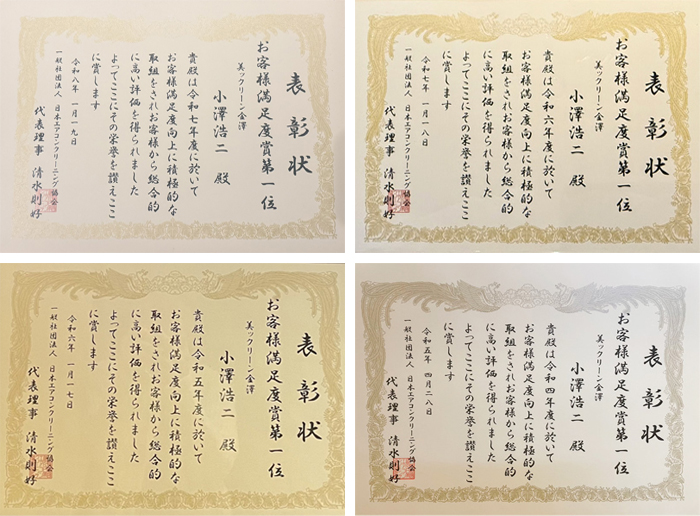 表彰状
お客様満足度賞第一位
美ックリーン金澤
小澤浩二 殿
貴殿は令和七年度に於いて
お客様満足度向上に積極的な
取組をされお客様から総合的
に高い評価を得られました
よってここにその栄誉を讃えここ
に賞します
令和八年 一月一九日
一般社団法人 日本エアコンクリーニング協会
代表理事 清水則好
表彰状
お客様満足度賞第一位
美ックリーン金澤
小澤浩二 殿
貴殿は令和六年度に於いて
お客様満足度向上に積極的な
取組をされお客様から総合的
に高い評価を得られました
よってここにその栄誉を讃えここ
に賞します
令和七年 一月一八日
一般社団法人 日本エアコンクリーニング協会
代表理事 清水則好
表彰状
お客様満足度賞第一位
美ックリーン金澤
小澤浩二 殿
貴殿は令和五年度に於いて
お客様満足度向上に積極的な
取組をされお客様から総合的
に高い評価を得られました
よってここにその栄誉を讃えここ
に賞します
令和六年 一月一七日
一般社団法人 日本エアコンクリーニング協会
代表理事 清水則好
表彰状
お客様満足度賞第一位
美ックリーン金澤
小澤浩二 殿
貴殿は令和四年度に於いて
お客様満足度向上に積極的な
取組をされお客様から総合的
に高い評価を得られました
よってここにその栄誉を讃えここ
に賞します
令和五年 四月二八日
一般社団法人 日本エアコンクリーニング協会
代表理事 清水則好